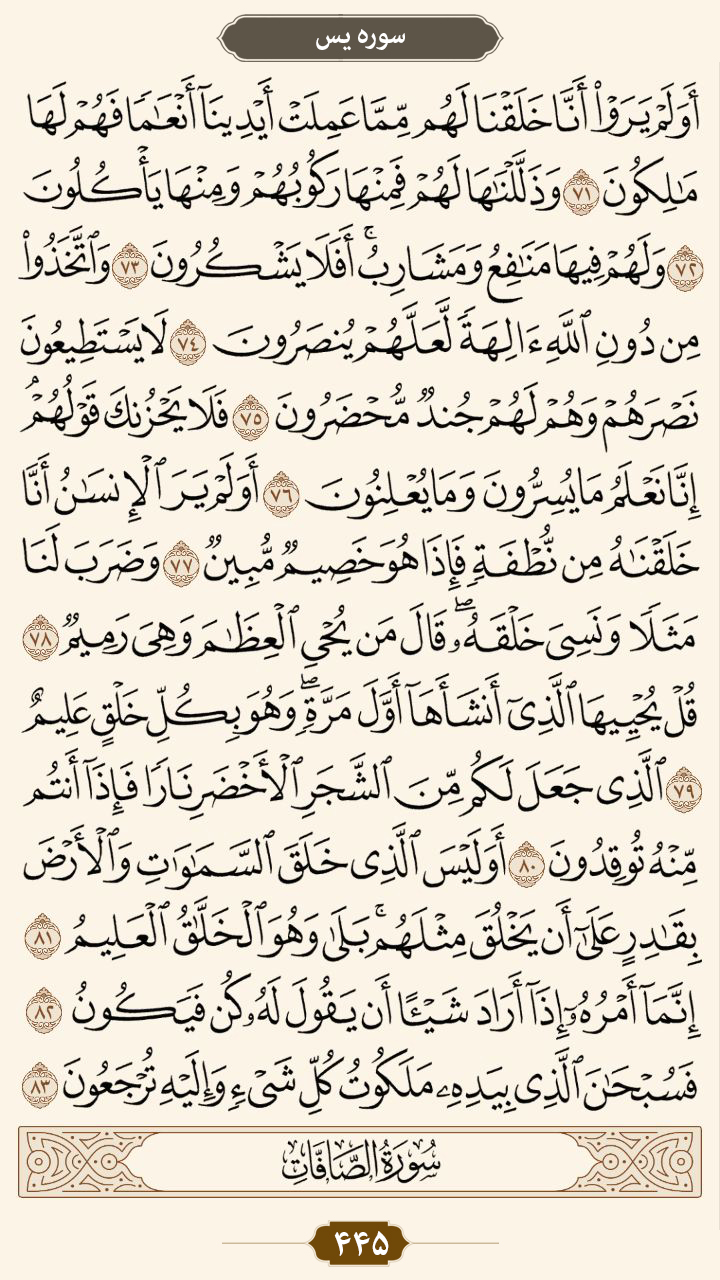 سوره یس
أَوَلَمْ يَرَوْا۟ أَنَّا خَلَقْنَا لَهُم مِّمَّا عَمِلَتْ أَيْدِينَآ أَنْعَٰمًا فَهُمْ لَهَا
مَٰلِكُونَ ٧١ وَذَلَّلْنَٰهَا لَهُمْ فَمِنْهَا رَكُوبُهُمْ وَمِنْهَا يَأْكُلُونَ
٧٢ وَلَهُمْ فِيهَا مَنَٰفِعُ وَمَشَارِبُ ۚ أَفَلَا يَشْكُرُونَ ٧٣ وَٱتَّخَذُوا۟
مِن دُونِ ٱللَّهِ ءَالِهَةً لَّعَلَّهُمْ يُنصَرُونَ ٧٤ لَا يَسْتَطِيعُونَ
نَصْرَهُمْ وَهُمْ لَهُمْ جُندٌ مُّحْضَرُونَ ٧٥ فَلَا يَحْزُنكَ قَوْلُهُمْ ۘ
إِنَّا نَعْلَمُ مَا يُسِرُّونَ وَمَا يُعْلِنُونَ ٧٦ أَوَلَمْ يَرَ ٱلْإِنسَٰنُ أَنَّا
خَلَقْنَٰهُ مِن نُّطْفَةٍ فَإِذَا هُوَ خَصِيمٌ مُّبِينٌ ٧٧ وَضَرَبَ لَنَا
مَثَلًا وَنَسِىَ خَلْقَهُۥ ۖ قَالَ مَن يُحْىِ ٱلْعِظَٰمَ وَهِىَ رَمِيمٌ ٧٨
قُلْ يُحْيِيهَا ٱلَّذِىٓ أَنشَأَهَآ أَوَّلَ مَرَّةٍ ۖ وَهُوَ بِكُلِّ خَلْقٍ عَلِيمٌ
٧٩ ٱلَّذِى جَعَلَ لَكُم مِّنَ ٱلشَّجَرِ ٱلْأَخْضَرِ نَارًا فَإِذَآ أَنتُم
مِّنْهُ تُوقِدُونَ ٨٠ أَوَلَيْسَ ٱلَّذِى خَلَقَ ٱلسَّمَٰوَٰتِ وَٱلْأَرْضَ
بِقَٰدِرٍ عَلَىٰٓ أَن يَخْلُقَ مِثْلَهُم ۚ بَلَىٰ وَهُوَ ٱلْخَلَّٰقُ ٱلْعَلِيمُ ٨١
إِنَّمَآ أَمْرُهُۥٓ إِذَآ أَرَادَ شَيْـًٔا أَن يَقُولَ لَهُۥ كُن فَيَكُونُ ٨٢
فَسُبْحَٰنَ ٱلَّذِى بِيَدِهِۦ مَلَكُوتُ كُلِّ شَىْءٍ وَإِلَيْهِ تُرْجَعُونَ ٨٣
سُورَةُ الصَّافَّاتِ
۴۴۵